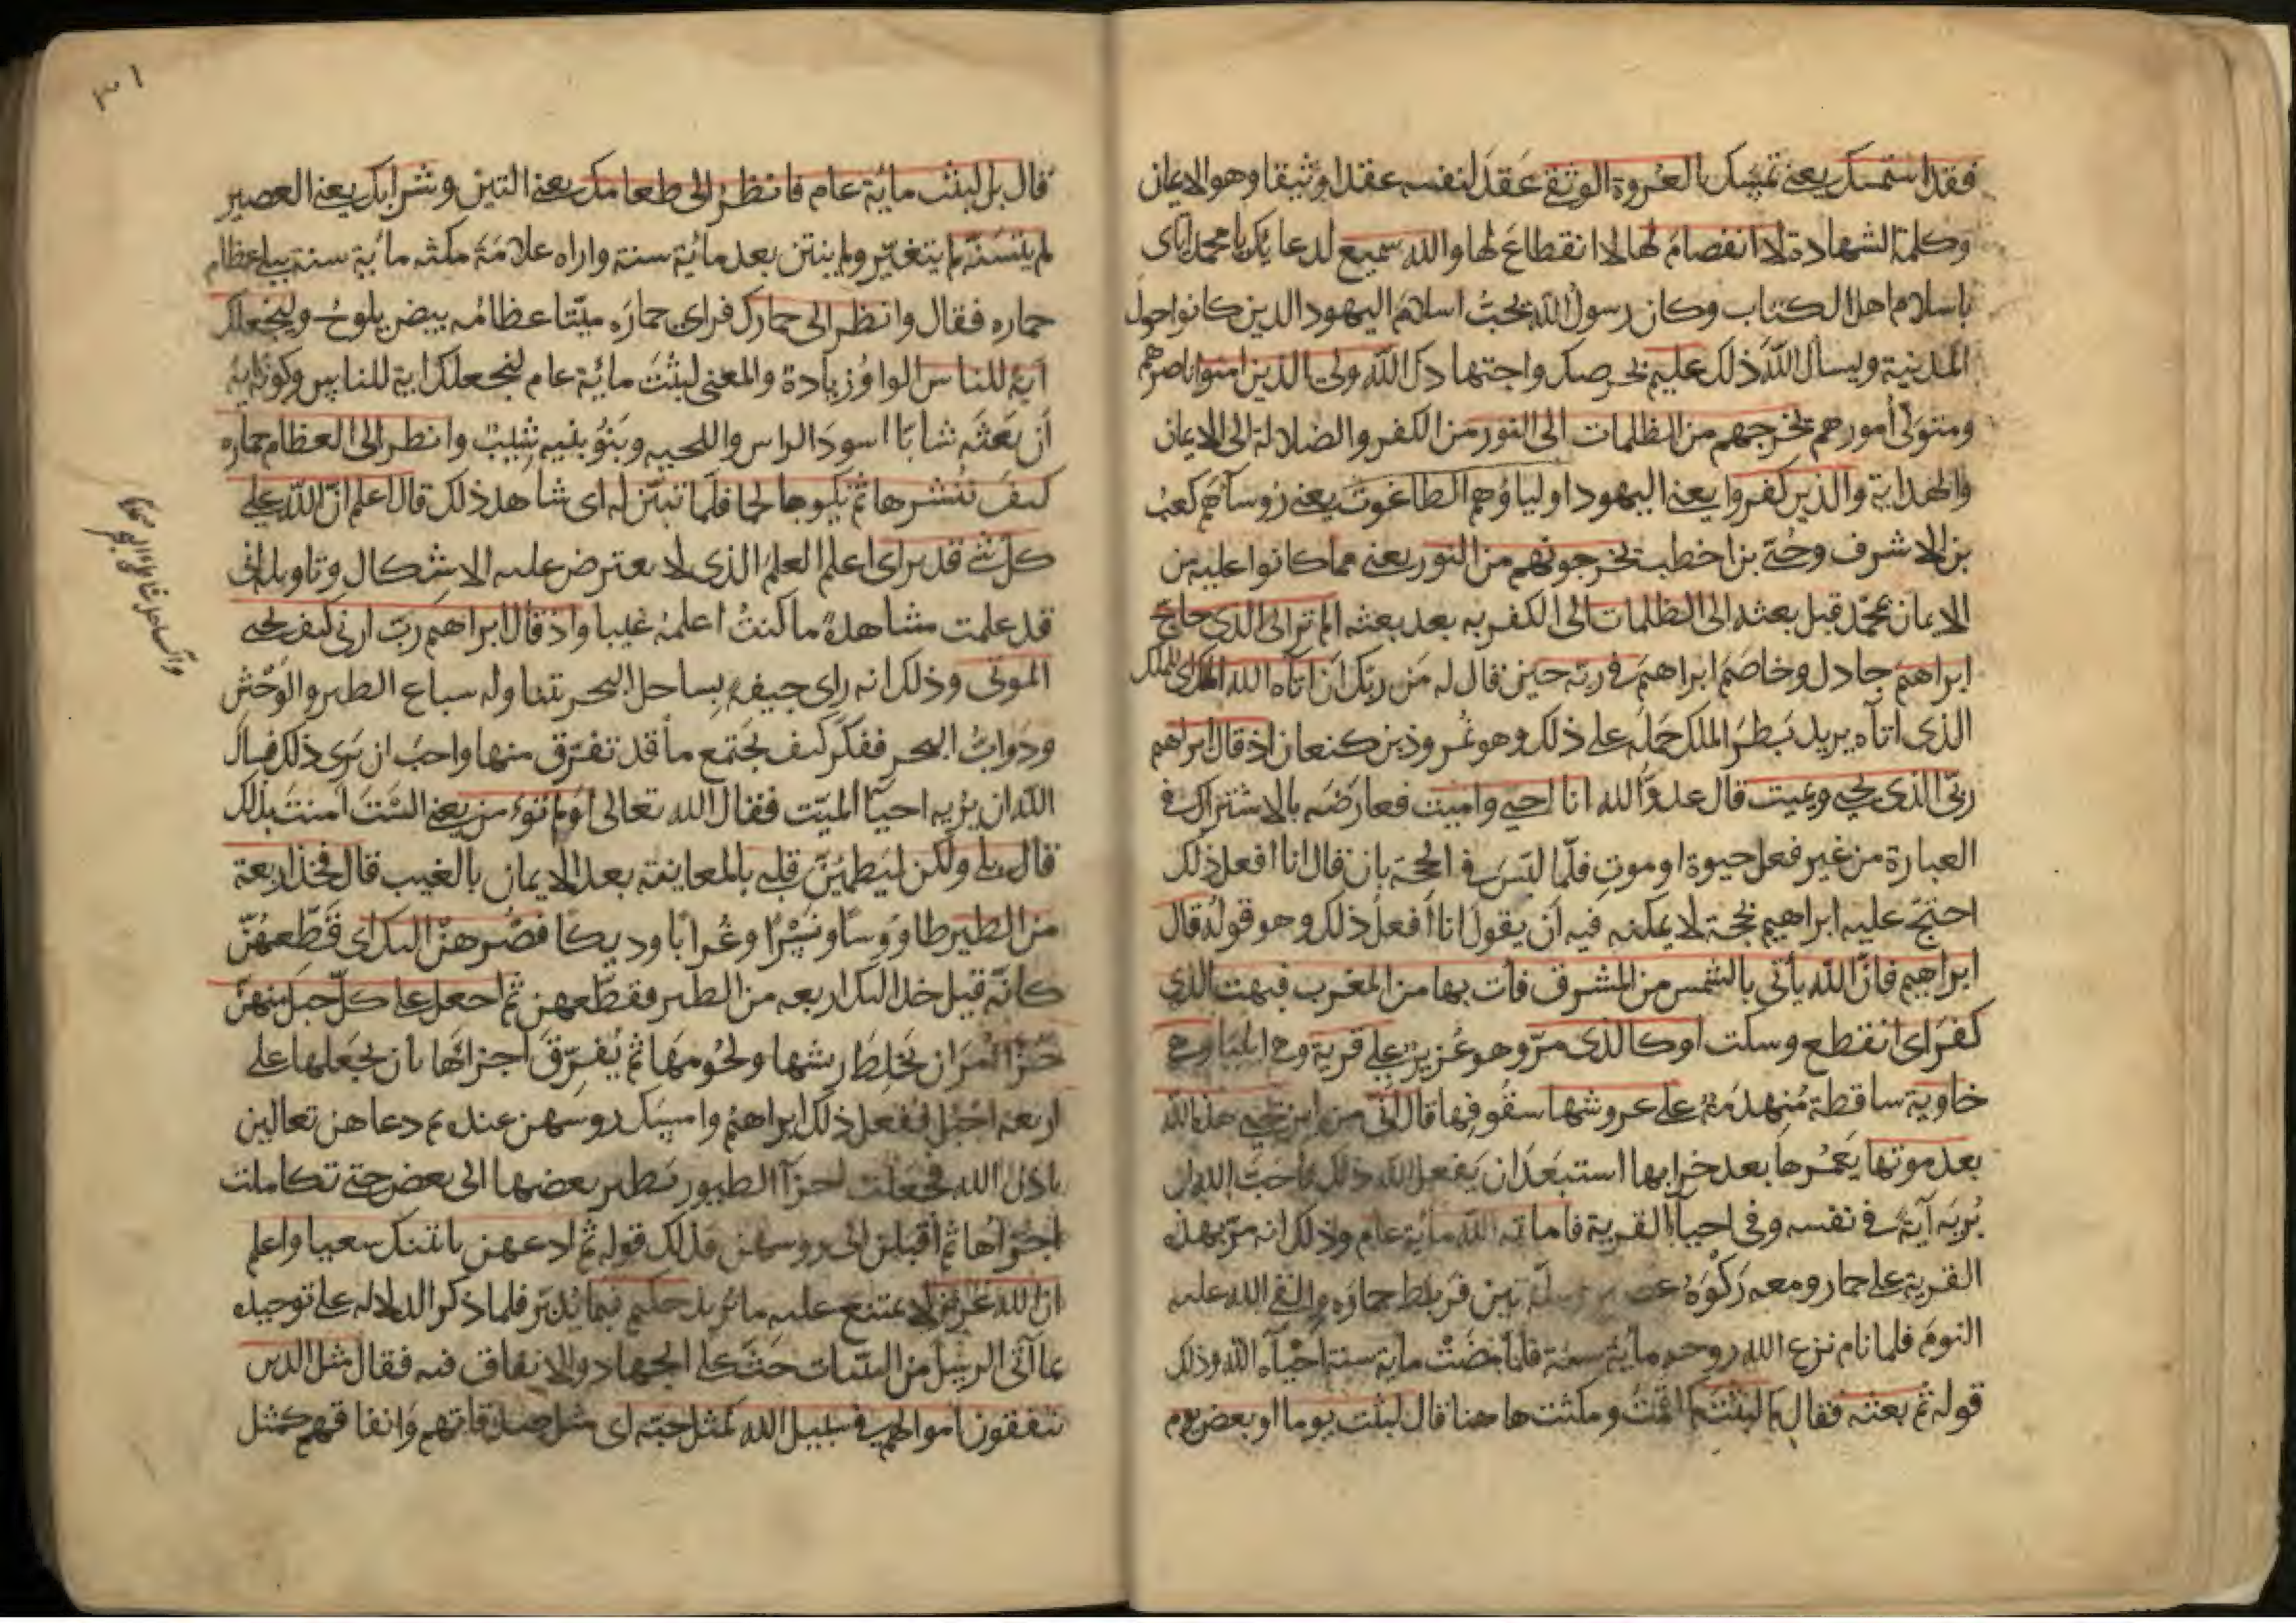 فقد استمسك يعني تمسّك بالعُروة الوثقى عَقَدَ لنفسه عقدا وثيقا وهو الايمان
وكلمة الشهادة لا انفصامَ لها لا انقطاعَ لها والله سميع لدعايك يا محمد اياى
باسلام اهل الكتاب وكان رسول الله يحبُّ اسلامَ اليهود الذين كانوا حول
المدينة ويسأل اللهَ ذلك عليم بحرصك واجتهادك الله وليّ الذين امنوا ناصرهم
ومتولّى أمورهم يخرجهم من الظلمات الى النور من الكفر والضلالة الى الايمان
والهداية والذين كفروا يعني اليهود اولياؤهم الطاغوت يعني رُوسآهم كعب
بن الاشرف وحُيَيّ بن اخطب يخرجونهم من النور يعني مما كانوا عليه من
الايمان بمحمّد قبل بعثه الى الظلمات الى الكفر به بعد بعثه الم تر الى الذي حاجّ
ابراهيم جادل وخاصَمَ ابراهيمَ في ربّه حين قال له مَن ربّك اَن اتآه الله الملك
الذى اتاه يريد بَطرُ الملك حَمَلَه على ذلك وهو نُمروذ بن كنعان اذ قال ابراهيم
ربّى الذى يحيى ويميت قال عدوّ الله انا احيى واميت فعارضَه بالاشتراك في
العبارة من غير فعل حيوة او موت فلمّا لبّسَ في الحجة بان قال انا افعل ذلك
احتجّ عليه ابراهيم بحجة لا يمكنه فيه اَن يقولَ انا اَفعلُ ذلك وهو قولهُ قال
ابراهيم فانّ الله يأتي بالشمس من المشرق فأت بها من المغرب فبهت الذي
كفرَ اى انقطع وسكت اوكالذى مرّ وهو عُزير على قرية وهي ايليا وهي
خاوية ساقطة مُنهدمة على عروشها سقوفها قال اَنّى من اين يحيى هذه الله
بعد موتها يَعمُرها بعد خرابها استبعَدَ ان يَفعل الله ذلك فاحَبَّ الله ان
يُريَه آيةً في نفسه وفي احيآ القرية فاماته الله ماية عام وذلك انه مرّ بهذه
القرية على حمار ومعه رَكْوَةُ عصير وسلّة تين فربط حمارَه والقى الله عليه
النومَ فلما نام نزع الله روحه ماية سنة فلمّا مضَتْ ماية سنة احْيآه الله وذلك
قوله ثم بعثه فقال كم لبثت كم اقمتَ ومكثت هاهنا قال لبثت يوما او بعض يوم
٣١
قال بل لبثت مائة عام فانظر الى طعامك يعني التين وشرابك يعني العصير
لم يتسَنّه لم يتغيّر ولم ينتن بعد مائة سنة واراه علامَةَ مكثه مائة سنة ببلى عظام
حماره فقال وانظر الى حمارك فراى حمارَه ميّتا عظامُه بيض يلوحُ ولنجعلك
آية للناس الواوُ زيادة والمعنى لبثتَ مائة عام لنجعلك اية للناس وكونُه اية
اَن بَعَثَه شابّا اسودَ الراس واللحيه وبَنُو بنيه شيب وانظر الى العظام حماره
كيفَ ننُشرها ثم نكسوها لحما فلمّا تبيّن له اى شاهد ذلك قال اعلم انّ الله على
كل شئ قدير اى اعلم العلمَ الذى لا يعترض عليه الاشكال وتاويله اني
قد علمت مشاهدةً ما كنتُ اعلمهُ غيبا واذ قال ابراهيم ربّ ارنى كيف تحيى
الموتى وذلك انه راى جيفةً بساحل البحر يتناوله سباع الطير والوَحْش
ودَوابُّ البحر ففكّر كيف يجتمع ما قد تفرّق منها واحبّ ان يَرَى ذلك فسأل
الله ان يُريه احيآ الميّت فقال الله تعالى اَولم تؤمن يعني الَستَ امنتَ بذلك
قال بلى ولكن ليَطمَئِنّ قلبى بالمعاينة بعد الايمان بالغيب قال فخذ اربعة
من الطير طاووسًا ونَسْرًا وغُرابًا وديكا فصُرهنّ اليك اى قَطِّعهُنّ
كانّه قيل خذ اليك اربعه من الطير فقطّعهن ثم اجعل على كلّ جبل منهنّ
جُزْأ اُمرَ ان يَخلِطَ ريشها ولحُومَها ثم يُفرّقَ اجزاءَها بأن يجعلها على
اربعة اجْبُل ففعل ذلك ابراهيمُ وامسَك روسهن عنده ثم دعاهن تعالين
باذن الله فجعلت اجزآ الطيور تطير بعضها الى بعض حتى تكاملت
اجزآؤها ثم اَقبلن الى روسهن فذلك قوله ثم ادعهن ياتينك سعيا واعلم
ان الله عزيز لا يمتنع عليه ما يُريد حكيم فيما يُدبّر فلما ذكر الدلاله على توحيده
بما آتى الرسُلَ من البيّنات حَثَّ على الجهاد والانفاق فيه فقال مثل الذين
ينفقون اموالهم في سبيل الله كمثل حبّه اى مثل صدقاتهم وانفاقهم كمثل